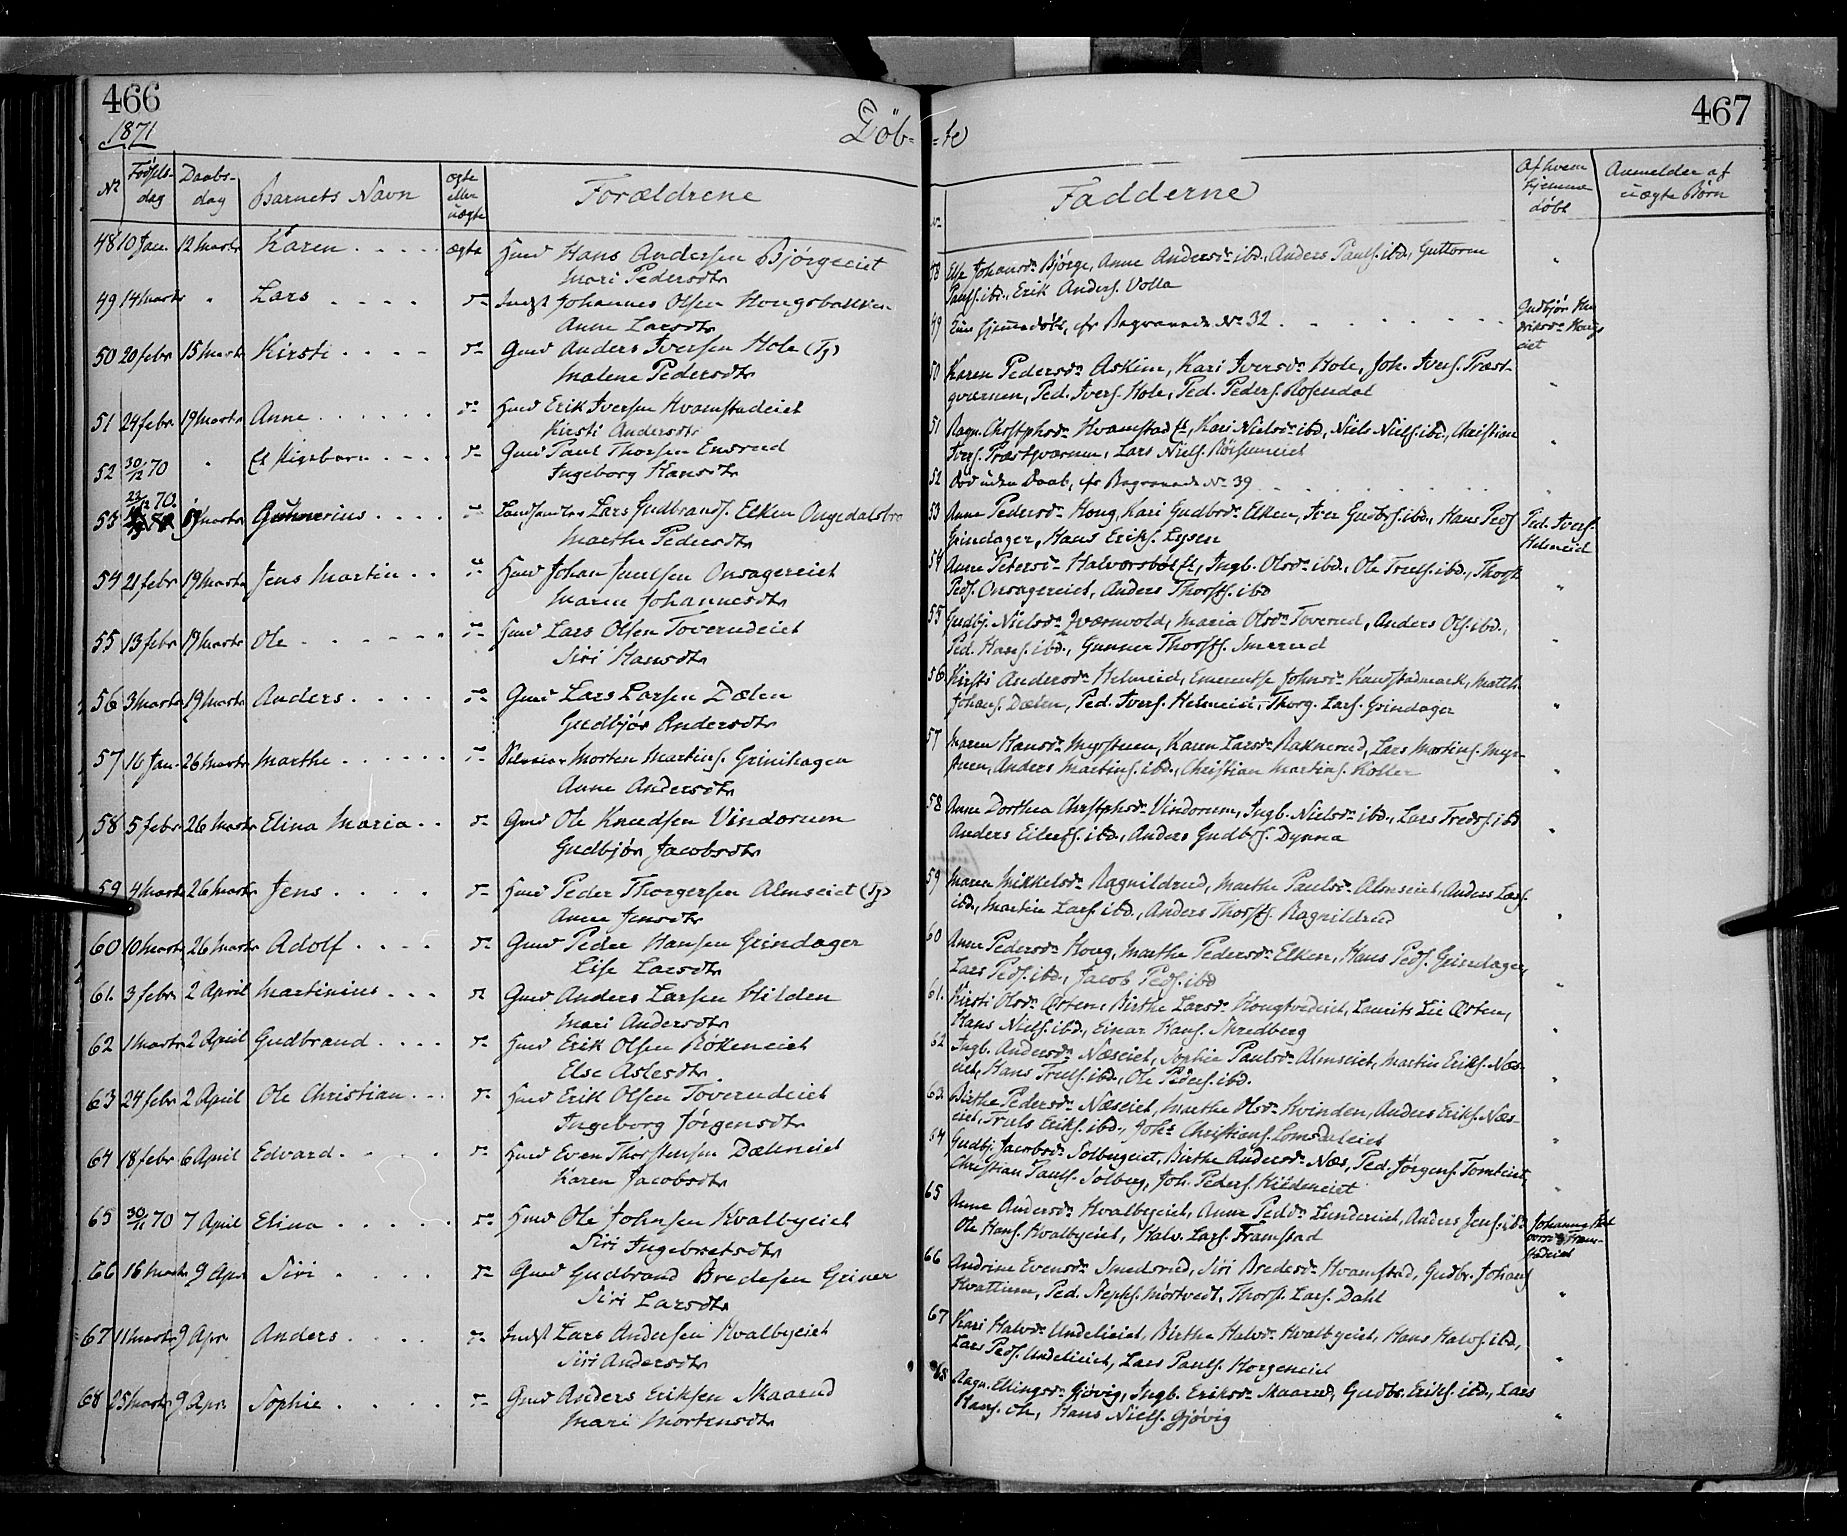 466
1871
Döb-
Nr Fødsels-dag Daabs-dag Barnets Navn ægte eller uægte Forældrene
48 10 Jan. 12 Marts Karen . . . . ægte Huusm Hans Andersen Bjørgeeiet
Mari Pedersdtr
49 14 Marts " Lars . . . . do Inderst Johannes Olsen Hougsbakken
Anne Larsdtr
50 20 febr 15 Marts Kirsti . . . . do Gmd Anders Iversen Hole (Tj)
Malene Pedersdtr
51 24 febr 19 Marts Anne . . . . . . do Hmd Erik Iversen Hvamstadeiet
Kirsti Andersdtr
52 30/12 70 " Et Pigebarn . . . . do Gmd Paul Thorsen Ensrud
Ingeborg Hansdtr
53 23/12 70. 19 Marts Gunnerius . . . . do Lars Gudbrands. Elken
Marthe Pedersdtr
54 21 febr 19 Marts Jens Martin . . do Hmd Johan Juulsen Onsagereiet
Maren Johannesdtr
55 13 febr 19 Marts Ole . . . . . . do Hmd Lars Olsen Toverudeiet
Siri Hansdtr
56 3 Marts 19 Marts Anders . . . . do Gmd Lars Larsen Dælen
Gudbjør Andersdtr
57 16 Jan. 26 Marts Marthe . . . . . . do Morten Martins. Grinihagen
Anne Andersdtr
58 5 febr 26 Marts Elina Maria . . do Gmd Ole Knudsen Vindorum
Gudbjør Jacobsdtr
59 4 Marts 26 Marts Jens . . . . do Hmd Peder Thorgersen Almseiet (Tj)
Anne Jensdtr
60 10 Marts 26 Marts Adolf . . . . do Gmd Peder Hansen Grindager
Lise Larsdtr
61. 3 febr 2 April Martinius . . . do Gmd Anders Larsen Hilden
Mari Andersdtr
62 1 Marts 2 April Gudbrand . . . . do Hmd Erik Olsen Røkeneiet
Else Aslesdtr
63 24 febr 2 April Ole Christian . . . do Hmd Erik Olsen Toverudeiet
Ingeborg Jørgensdtr
64 18 febr 6 April Edvard . . . . do Hmd Even Thorstensen Dæleneiet
Karen Jacobsdtr
65 30/11 70 7 April Elina . . . . . do Hmd Ole Johnsen Kvalbyeiet
Siri Ingebretsdtr
66 16 Marts 9 Apr Siri . . . . . do Gmd Gudbrand Bredesen Griner
Siri Larsdtr
67 11 Marts 9 Apr. Anders . . . . do Indst Lars Andersen Kvalbyeiet
Siri Andersdtr
68 25 Marts 9 Apr. Sophie . . . . . do Gmd Anders Eriksen Skaarud
Mari Mortensdtr
467
-te
Nr Fadderne Af hvem hjemmedøbt Anmelder af uægte Børn
48 Else Johansdr Bjørge, Anne Andersdr ibd., Anders Pauls. ibd., Guttorm
Pauls. ibd., Erik Anders. Volla "
49 Kun hjemmedøbt, cfr Begravede Nr 32 . . . . . . Gudbjør
50 Karen Pedersdr Askim, Kari Iversdr Hole, Joh. Ivers. Præst-
qværnen, Ped. Ivers. Hole, Ped. Peders. Rosendal "
51 Ragn. Chrstphsdr Hvamstad, Kari Nielsdr ibd., Niels Niels. ibd., Christian
Ivers. Præstqværnen, Lars Niels. "
52 Død uden Daab, cfr Begravede Nr 39 . . . . . . "
53 Anne Pedersdr Houg, Kari Gudbrdr Elken, Iver Gudbrs. ibd., Hans Peds. Ped. Ivers.
Grindager, Hans Eriks. Lysen Helmeid
54 Anne Petersdr Halvorsbøl, Ingb. Olsdr ibd., Ole Truls. ibd., Thorst.
Peds. Onsagereiet, Anders Thorsts. ibd "
55 Gudbj. Nielsdr Qværnvold, Maria Olsdr Toverud, Anders Ols. ibd.,
Ped. Hans. ibd., Gunner Thorsts. Smerud "
56 Kirsti Andersdr Helmeid, Emerentse Johnsdr Hamstadmark, Math.
Johans. Dælen, Ped. Ivers. Helmeid, Thorg. Lars. Grindager "
57 Maren Hansdr Myrstuen, Karen Larsdr Raknerud, Lars Martins. Myr-
stuen, Anders Martins. ibd., Christian Martins. Koller "
58 Anne Dorthea Chrstphsdr Vindorum, Ingb. Nielsdr ibd., Lars Fredrs. ibd
Anders Eilerts. ibd., Anders Gudbrs. Dynna "
59 Maren Mikkelsdr Ragnildrud, Marthe Paulsdr Almseiet, Anders Lars.
ibd., Martin Lars. ibd., Anders Thorsts. Ragnildrud "
60 Anne Pedersdr Houg, Marthe Pedersdr Elken, Hans Peds. Grindager,
Lars Peds. ibd., Jacob Peds. ibd "
61. Kirsti Olsdr Østen, Birthe Larsdr Hougtvedeiet, Laurits Lie Østen,
Hans Niels. ibd., Einar Hans. Skredberg "
62 Ingb. Andersdr Næseiet, Sophie Paulsdr Almseiet, Martin Eriks. Næs-
eiet, Hans Truls. ibd., Ole Peders. ibd. "
63 Birthe Pedersdr Næseiet, Marthe Olsdr Hvinden, Anders Eriks. Næs-
eiet, Truls Eriks. ibd., Johs Christians. Lomsdaleiet "
64 Gudbj. Jacobsdr Solbergeiet, Birthe Andersdr Næs, Ped. Jørgens. Tomteiet,
Christian Pauls. Solberg, Joh. Peders. Hildeneiet "
65 Anne Andersdr Kvalbyeiet, Anne Pedsdr Lundereiet, Anders Jens. ibd
Ole Hans. Kvalbyeiet, Halv. Lars. Framstad
66 Andrine Evensdr Smedsrud, Siri Bredesdr Hvamstad, Gudbr. Johans.
Hvattum, Ped. Stephs. Mørtvedt, Thorst. Lars. Dahl "
67 Kari Halvdr Undelieiet, Birthe Halvdr Kvalbyeiet, Hans Halvs. ibd.,
Lars Peds. Undelieiet, Lars Pauls. Horgeneiet "
68 Ragn. Ellingsdr Gjøvig, Ingb. Eriksdr Skaarud, Gudbr. Eriks. ibd., Lars
Hans. ibd., Hans Niels. Gjøvig "